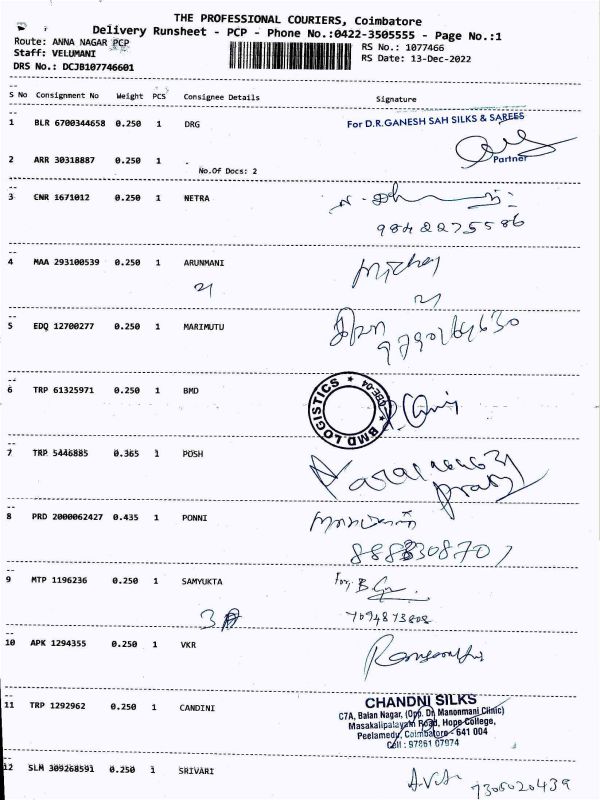 THE PROFESSIONAL COURIERS, Coimbatore
Delivery Runsheet - PCP - Phone No.:0422-3505555 - Page No.:1
Route: ANNA NAGAR PCP
Staff: VELUMANI
DRS No.: DCJB107746601
RS No.: 1077466
RS Date: 13-Dec-2022
S No Consignment No Weight PCS Consignee Details Signature
1 BLR 6700344658 0.250 1 DRG
For D.R.GANESH SAH SILKS & SAREES
Partner
2 ARR 30318887 0.250 1 .
No.Of Docs: 2
3 CNR 1671012 0.250 1 NETRA
9842275586
4 MAA 293100539 0.250 1 ARUNMANI
5 EDQ 12700277 0.250 1 MARIMUTU
6 TRP 61325971 0.250 1 BMD
BMD LOGISTICS
7 TRP 5446885 0.365 1 POSH
8 PRD 2000062427 0.435 1 PONNI
9 MTP 1196236 0.250 1 SAMYUKTA
7094873808
10 APK 1294355 0.250 1 VKR
11 TRP 1292962 0.250 1 CANDINI
CHANDNI SILKS
C7A, Balan Nagar, (Opp. Dr. Manonmani Clinic)
Masakalipalayam Road, Hope College,
Peelamedy, Coimbatore - 641 004
Cell : 97861 07974
12 SLM 309268591 0.250 1 SRIVARI
7305020439